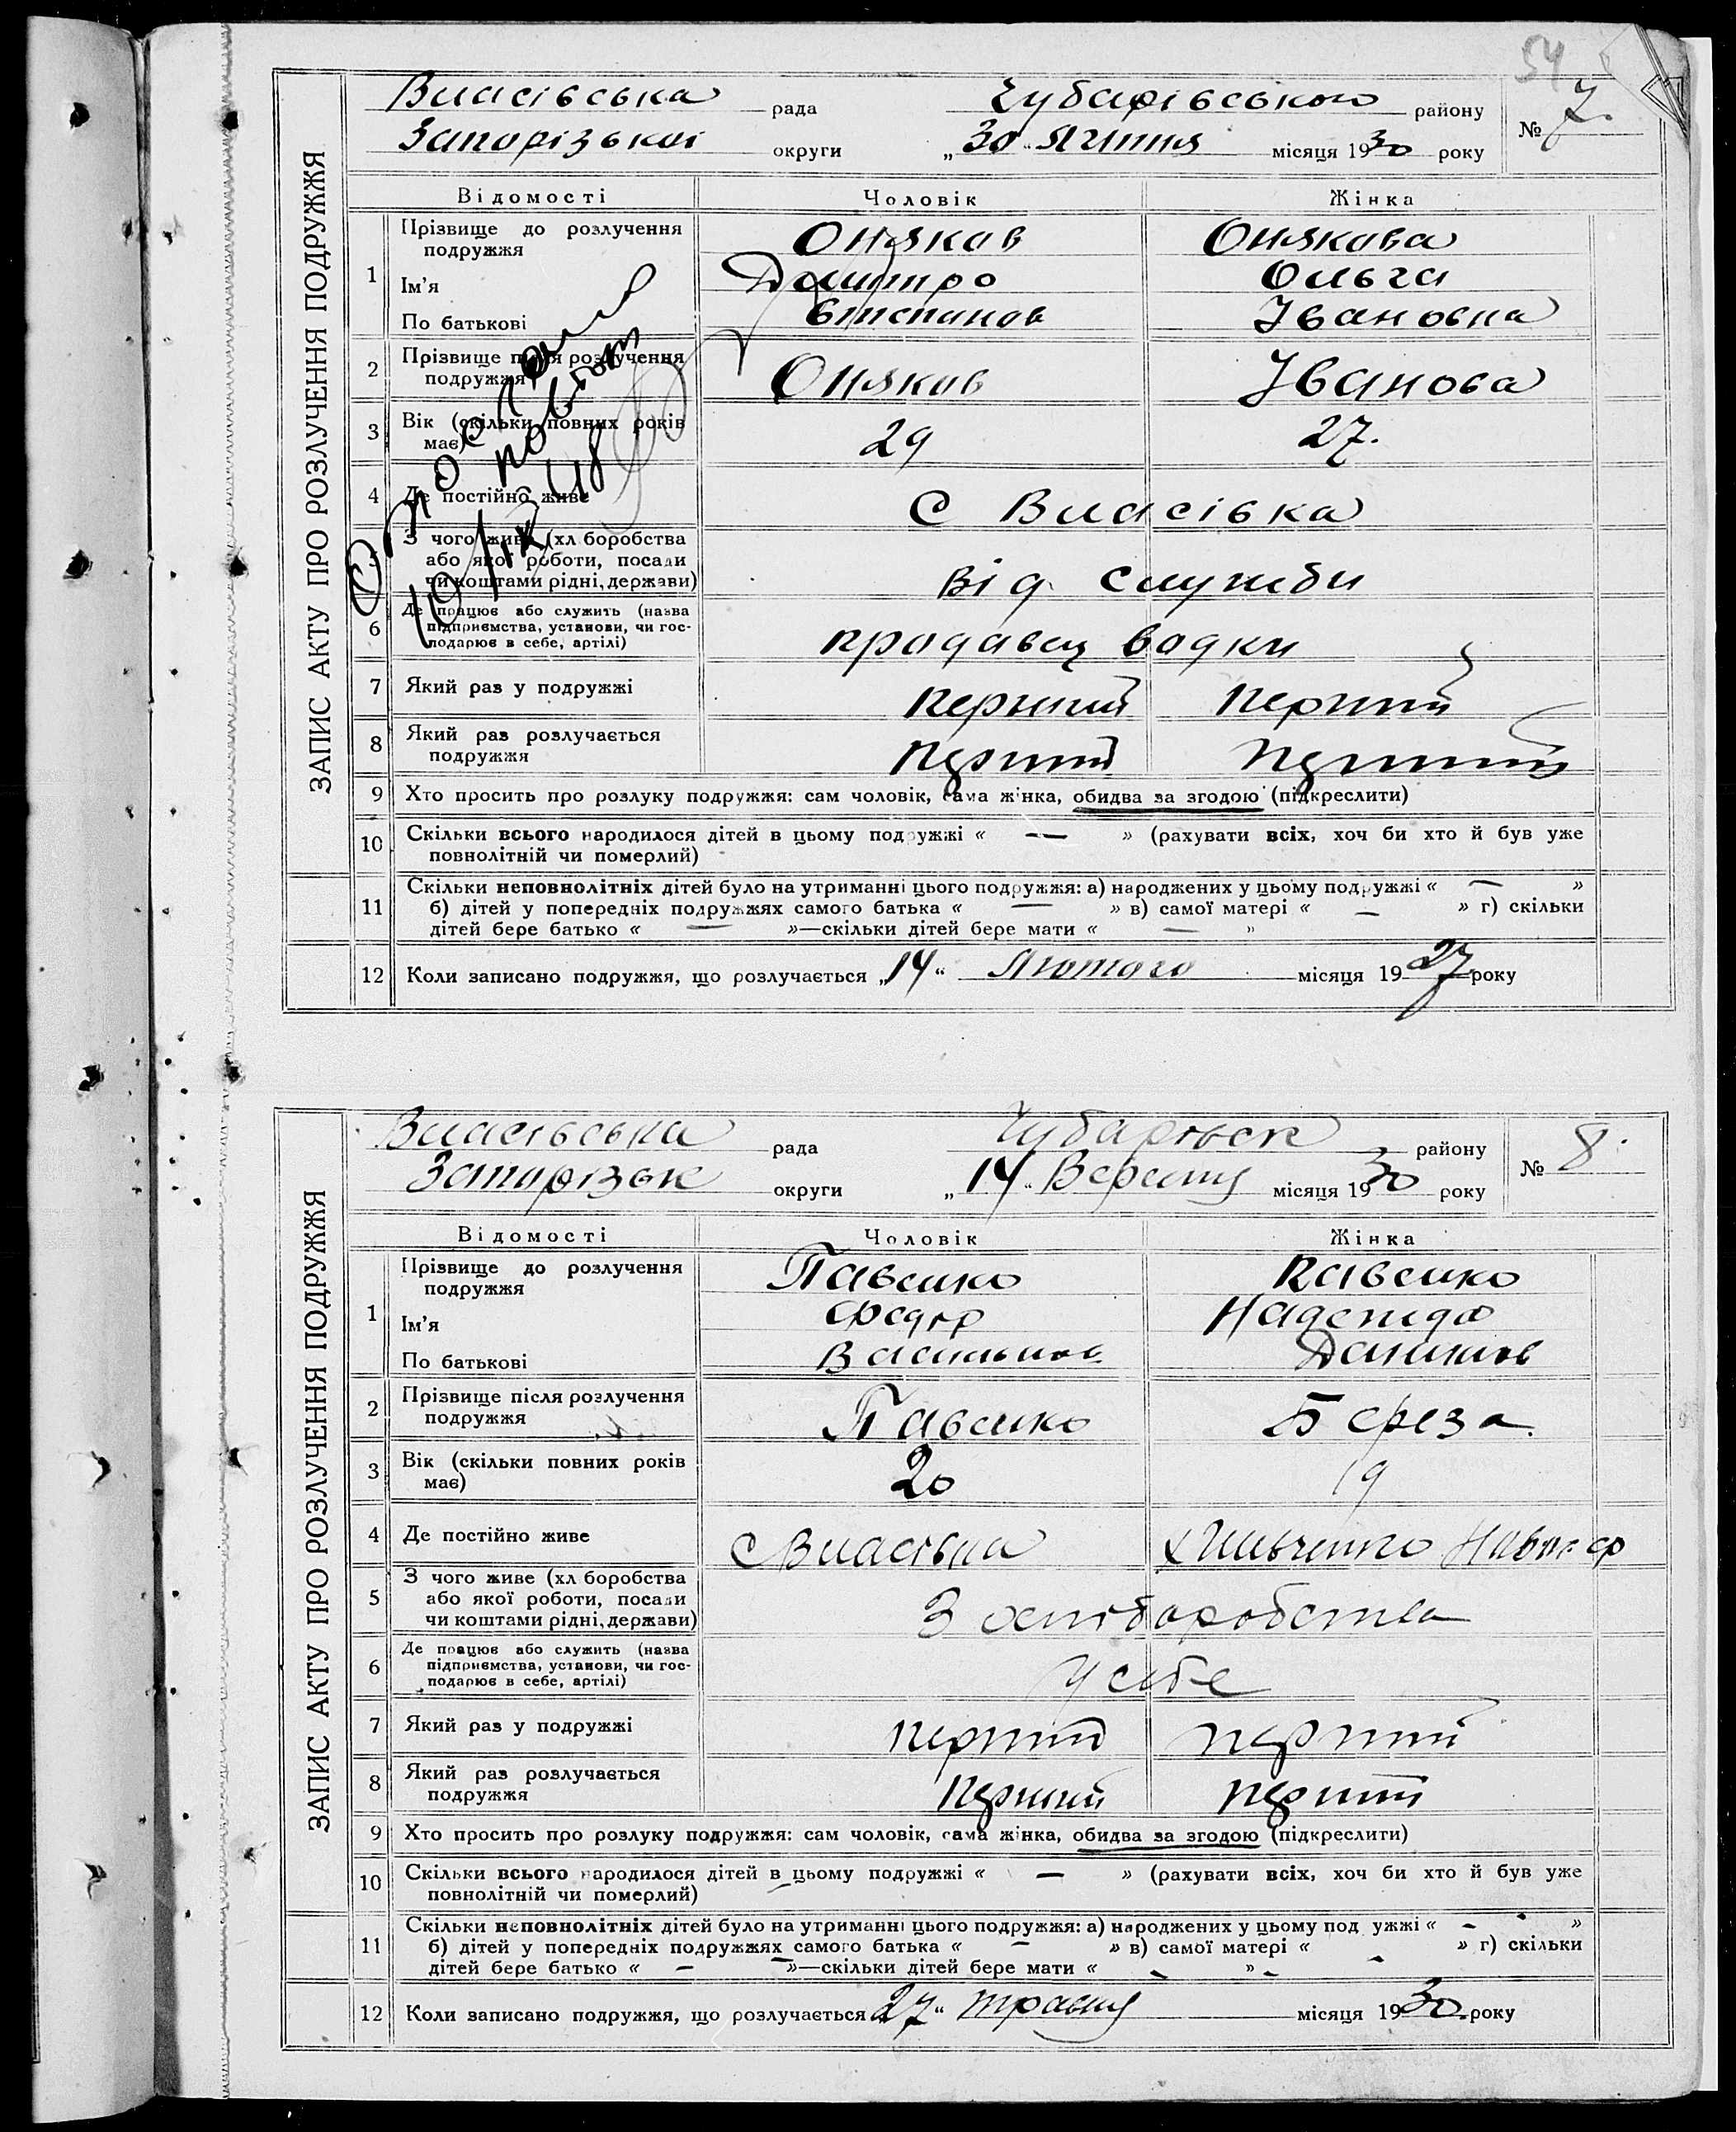 54
Власівська рада Чубарівського району № 7.
Запорізької округи „30“ липня місяця 1930 року
ЗАПИС АКТУ ПРО РОЗЛУЧЕННЯ ПОДРУЖЖЯ
Відомості Чоловік Жінка
1 Прізвище до розлучення подружжя Оняков Онякова
Ім'я Дмитро Ольга
По батькові Степанов Івановна
2 Прізвище після розлучення подружжя Оняков Іванова
3 Вік (скільки повних років має) 29 27.
4 Де постійно живе С Власівка
5 З чого живе (хл боробства
або якої роботи, посади
чи коштами рідні, держави) Від служби
6 Де працює або служить (назва
підприємства, установи, чи гос-
подарює в себе, артілі) продавец водки
7 Який раз у подружжі перший перший
8 Який раз розлучається
подружжя перший перший
9 Хто просить про розлуку подружжя: сам чоловік, сама жінка, обидва за згодою (підкреслити)
10 Скільки всього народилося дітей в цьому подружжі « — » (рахувати всіх, хоч би хто й був уже
повнолітній чи померлий)
11 Скільки неповнолітніх дітей було на утриманні цього подружжя: а) народжених у цьому подружжі « — »
б) дітей у попередніх подружжях самого батька « — » в) самої матері « — » г) скільки
дітей бере батько « — »—скільки дітей бере мати « — »
12 Коли записано подружжя, що розлучається „14“ Лютого місяця 1927 року
Власівська рада Чубарівськ району № 8.
Запорізьк округи „14“ Вересня місяця 1930 року
ЗАПИС АКТУ ПРО РОЗЛУЧЕННЯ ПОДРУЖЖЯ
Відомості Чоловік Жінка
1 Прізвище до розлучення
подружжя Павенко Павенко
Ім'я Федір Надежда
По батькові Васильов. Данилов
2 Прізвище після розлучення
подружжя Павенко Береза.
3 Вік (скільки повних років
має) 20 19
4 Де постійно живе С Власівка
5 З чого живе (хл боробства
або якої роботи, посади
чи коштами рідні, держави) З хліборобства
6 Де працює або служить (назва
підприємства, установи, чи гос-
подарює в себе, артілі) У себе
7 Який раз у подружжі перший перший
8 Який раз розлучається
подружжя перший перший
9 Хто просить про розлуку подружжя: сам чоловік, сама жінка, обидва за згодою (підкреслити)
10 Скільки всього народилося дітей в цьому подружжі « — » (рахувати всіх, хоч би хто й був уже
повнолітній чи померлий)
11 Скільки неповнолітніх дітей було на утриманні цього подружжя: а) народжених у цьому под ужжі « - »
б) дітей у попередніх подружжях самого батька « - » в) самої матері « - » г) скільки
дітей бере батько « - »—скільки дітей бере мати « - »
12 Коли записано подружжя, що розлучається 27“ травня місяця 1930 року